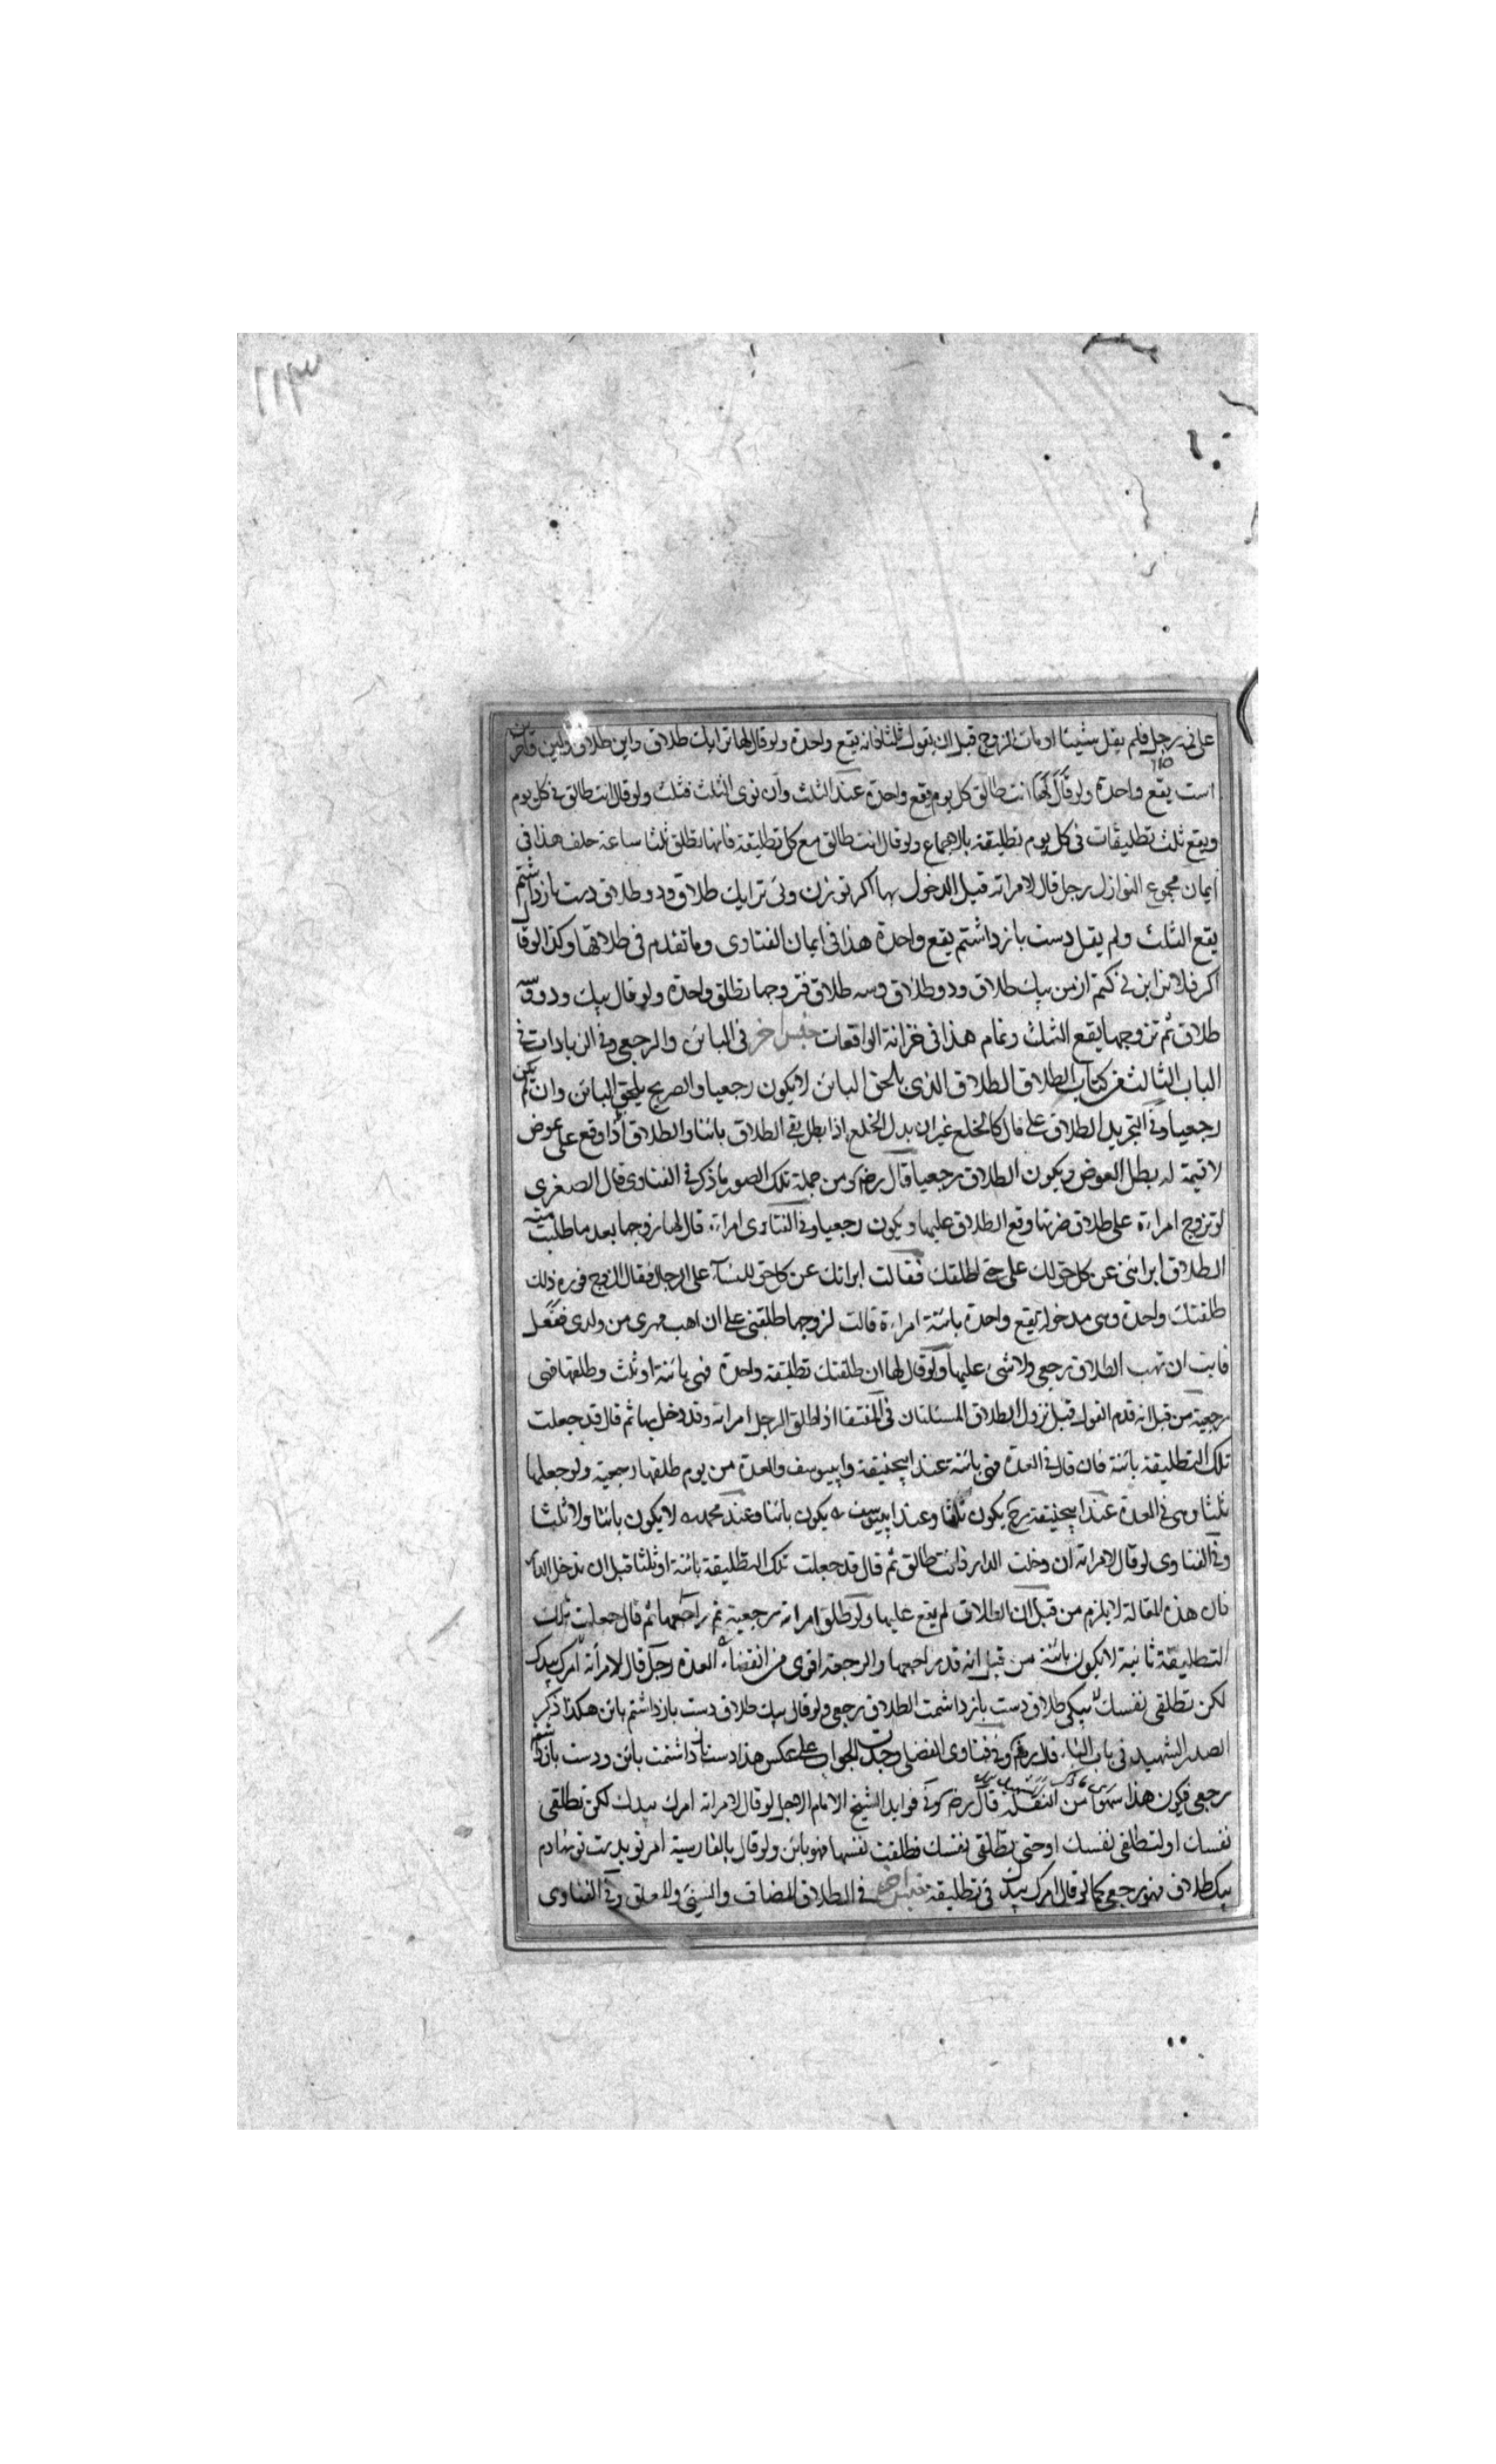 ١١٣
على في رجل فلم يقل شيئا او مات الزوج قبل ان يقول ثلثا فانه يقع واحدة ولو قال لها ترا يك طلاق واين طلاق واين
است يقع واحدة ولو قال لها انت طالق كل يوم يقع واحدة عند الثلث وان نوى الثلث فثلث ولو قال انت طالق في كل يوم
ويقع ثلث تطليقات في كل يوم تطليقة بالاجماع ولو قال انت طالق مع كل تطليقة فانها تطلق ثلثا ساعة حلف هذا في
ايمان مجموع النوازل رجل قال لامراته قبل الدخول بها اكر تو زن وئى ترا يك طلاق ودو طلاق دست بازداشتم
يقع الثلث ولم يقل دست بازداشتم يقع واحدة هذا في ايمان الفتاوى وما تقدم في طلاقها وكذا لو قال
اكر فلانرا بزنى كنم از من بيك طلاق ودو طلاق وسه طلاق فتزوجها تطلق واحدة ولو قال بيك ودو وسه
طلاق ثم تزوجها يقع الثلث وتمام هذا في خزانة الواقعات جنس اخر في البائن والرجعى وفي الزيادات في
الباب الثالث من كتاب الطلاق الطلاق الذى يلحق البائن لا يكون رجعيا والصريح يلحق البائن وان لم يكن
رجعيا وفي التجريد الطلاق على مال كالخلع غير ان بدل الخلع اذا بطل بقي الطلاق بائنا والطلاق اذا وقع على عوض
لا قيمة له بطل العوض ويكون الطلاق رجعيا قال رضه ومن جملة تلك الصور ما ذكر في الفتاوى قال الصغرى
لو تزوج امراءة على طلاق ضرتها وقع الطلاق عليها ويكون رجعيا وفي الفتاوى امراءة قال لها زوجها بعد ما طلبت منه
الطلاق ابرائنى عن كل حق لك على حتى اطلقك فقالت ابراتك عن كل حق للنساء على الرجال فقال الزوج فوره ذلك
طلقتك واحدة وهى مدخولة يقع واحدة بائنة امراءة قالت لزوجها طلقنى على ان اهب مهرى من ولدى ففعل
فابت ان تهب الطلاق رجعى ولا شئ عليها ولو قال لها ان طلقتك تطليقة واحدة فهى بائنة او ثلث وطلقها فهى
رجعية من قبل انه قدم القول قبل نزول الطلاق المسئلتان في المنتقا اذا طلق الرجل امراته وقد دخل بها ثم قال قد جعلت
تلك التطليقة بائنة فان قال في العدة فهى بائنة عند ابيحنيفة وابيوسف والعدة من يوم طلقها رجعية ولو جعلها
ثلثا وهى في العدة عند ابيحنيفة رح يكون ثلثا وعند ابيوسف يكون بائنا وعند محمد لا يكون بائنا ولا ثلثا
وفي الفتاوى لو قال لامراته ان دخلت الدار فانت طالق ثم قال قد جعلت تلك التطليقة بائنة او ثلثا قبل ان تدخل الدار
فان هذه المقالة لا يلزم من قبل ان الطلاق لم يقع عليها ولو طلق امراته رجعية ثم راجعها ثم قال جعلت تلك
التطليقة ثانية لا يكون بائنة من قبل انه قد راجعها والرجعة اقوى من انقضاء العدة رجل قال لامرأته امرك بيدك
لكن تطلقى نفسك بيكى طلاق دست بازداشمت الطلاق رجعى ولو قال بيك طلاق دست بازداشتم بائن هكذا ذكر
الصدر الشهيد في باب التاء وفي فتاوى الفضلى وجدت الجواب على عكس هذا دست بازداشتمت بائن ودست بازداشتم
رجعى فيكون هذا سهوا من النقلة قال رضه وفي فوايد الشيخ الامام الاجل لو قال لامراته امرك بيدك لكن تطلقى
نفسك او لتطلقى نفسك او حتى تطلقى نفسك فطلقت نفسها فهو بائن ولو قال بالفارسية امر تو بدست تو نهادم
بيك طلاق فهو رجعى كما لو قال امرك بيدك في تطليقة جنس اخر في الطلاق المضاف والسنى والمعلق وفي الفتاوى